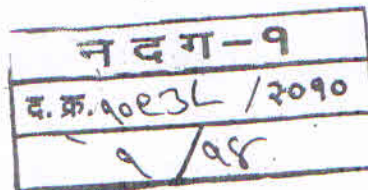 न द ग - १
द. क्र. १०९३८ / २०१०
१ / १४